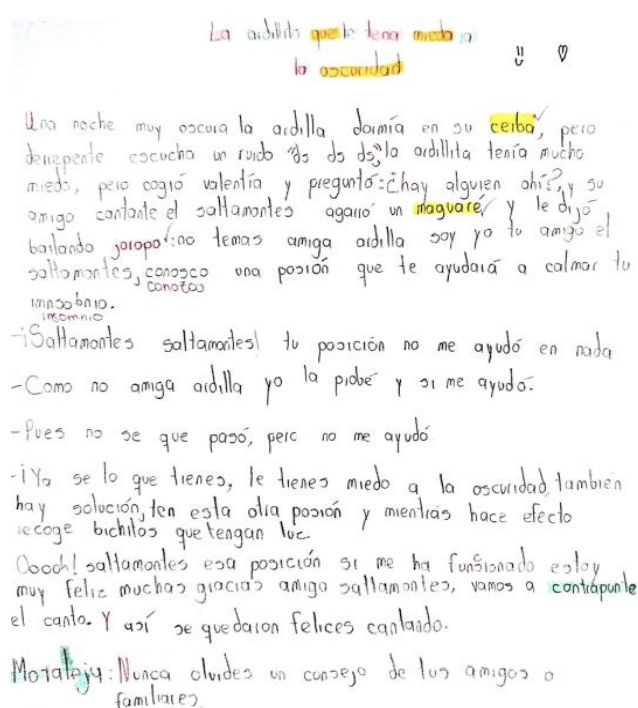 La ardillita que le tenia miedo a
la oscuridad
Una noche muy oscura la ardilla dormía en su ceiba, pero
derrepente escucho un ruido "ds ds ds", la ardillita tenía mucho
miedo, pero cogió valentía y preguntó: ¿hay alguien ahí?, y su
amigo cantante el saltamontes agarró un maguare, y le dijó
bailando joropo: no temas amiga ardilla soy yo tu amigo el
saltamontes, conosco una posión que te ayudará a calmar tu
conozco
imnsobnio.
insomnio
-¡Saltamontes saltamontes! tu posición no me ayudó en nada
-Como no amiga ardilla yo la probé y si me ayudó.
-Pues no se que pasó, pero no me ayudó
-¡Ya se lo que tienes, le tienes miedo a la oscuridad, también
hay solución, ten esta otra posión y mientras hace efecto
recoge bichitos que tengan luz.
Ooooh! saltamontes esa posición si me ha funsionado estoy
muy feliz muchas gracias amigo saltamontes, vamos a contrapunte
el canto. Y así se quedaron felices cantando.
Moraleja: Nunca olvides un consejo de tus amigos o
familiares.